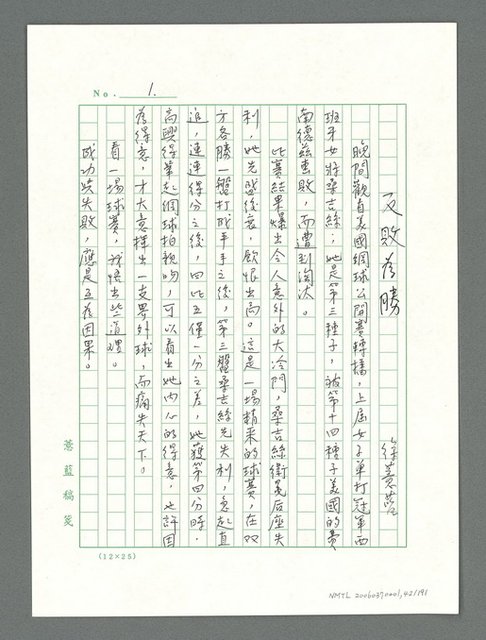 No. 1.
反敗為勝
徐薏藍
晚間觀看美國網球公開賽轉播，上屆女子單打冠軍西
班牙女將桑吉絲；她是第三種子，被第十四種子美國的費
南德茲擊敗，而遭到淘汰。
此賽結果爆出令人意外的大冷門，桑吉絲衛冕后座失
利，她先盛後衰，飲恨出局。這是一場精采的球賽，在双
方各勝一盤打成平手之後，第三盤桑吉絲先失利，急起直
追，連連得分之後，四比五僅一分之差，她獲第四分時，
高興得舉起網球拍親吻，可以看出她內心的得意，也許因
為得意，才大意揮出一支界外球，而痛失天下。
看一場球賽，我悟出些道理。
成功與失敗，應是互為因果。
薏藍稿箋
(12×25)
NMTL 20060370001,42/191